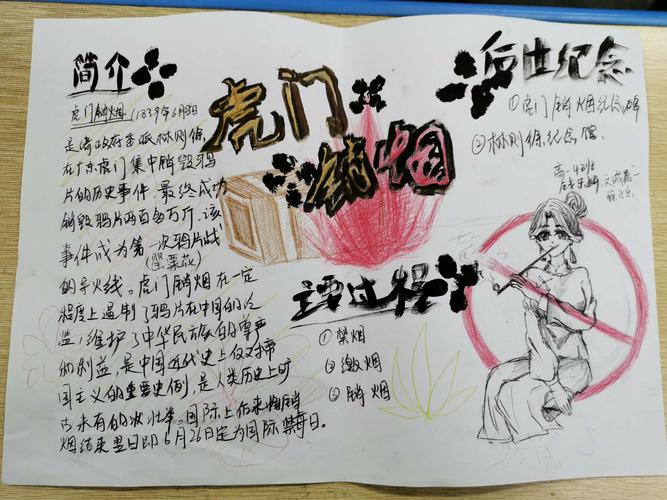 简介
虎门销烟（1839年6月3日
是清政府委派林则徐
在广东虎门集中销毁鸦
片的历史事件.最终成功
销毁鸦片两百多万斤.该
事件成为第一次鸦片战
(罂粟花)
的导火线。虎门销烟在一定
程度上遏制了鸦片在中国的
滥，维护了中华民族的尊严
和利益，是中国近代史上反对帝
国主义的重要史例，是人类历史上旷
古未有的壮举。国际上后来将销
烟结束翌日即6月26日定为国际禁毒日。
虎门
销烟
主要过程
①禁烟
②缴烟
③销烟
后世纪念
①虎门销烟纪念碑
②林则徐纪念馆
高一4班